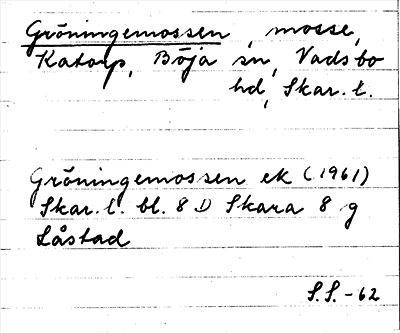 Gröningemossen, mosse,
Katorp, Böja sn, Vadsbo
hd, Skar. l.
Gröningemossen ek (1961)
Skar. l. bl. 8 D Skara 8 g
Låstad
S.S. -62